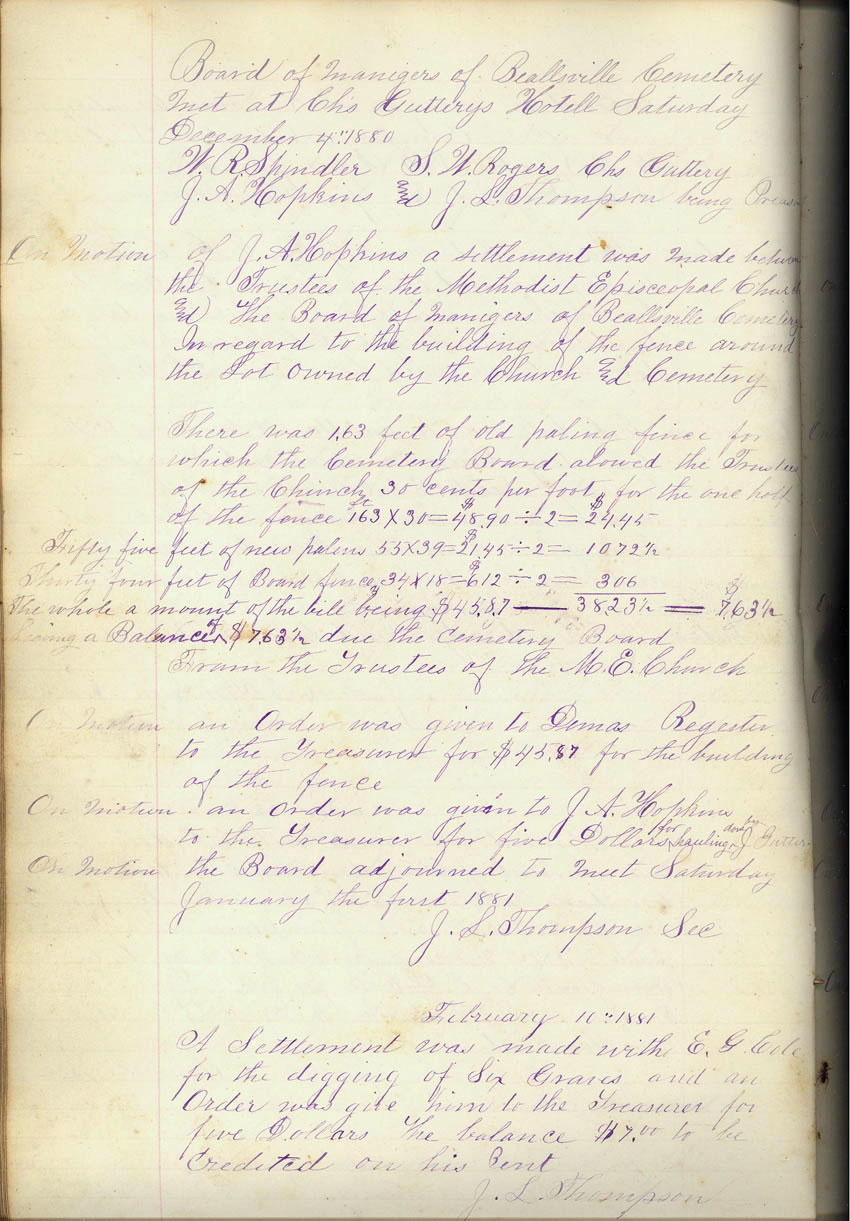 Board of Manigers of Beallsville Cemetery
Met at Chs Gutterys Hotell Saturday
December 4th 1880
W. R. Spindler S. W. Rogers Chs Guttery
J. A. Hopkins and J. L. Thompson being
On Motion of J. A. Hopkins a settlement was made between
the Trustees of the Methodist Episceopal Church
and The Board of Manigers of Beallsville Cemetery
In regard to the building of the fence around
the Lot owned by the Church and Cemetery
There was 1,63 feet of old paling fince for
which the Cemetery Board alowed the Trustees
of the Chinch 30 cents per foot for the one half
of the fence 163 X 30 = $48,90 ÷ 2 = $24,45
Fifty five feet of new palens 55 X 39 = $21,45 ÷ 2 = 10 72 1/2
Thirty four feet of Board fence, 34 X 18 = $6 12 ÷ 2 = 3 06
The whole a mount of the bile being $45,87 — 38 23 1/2 = $7,63 1/2
Leaving a Balance of $7,63 1/2 due the Cemetery Board
From the Trustees of the M. E. Church
On Motion an Order was given to Demas Regester
to the Treasurer for $45,87 for the building
of the fence
On Motion an order was given to J. A. Hopkins
to the Treasurer for five Dollars for hauling done by J Gutter
On Motion the Board adjourned to meet Saturday
January the first 1881
J. L. Thompson Sec
February 1881
A Settlement was made with E. G. Cole
for the digging of Six Graves and an
Order was give him to the Treasurer for
five Dollars The balance $7.00 to be
Credeted on his
J. L. Thompson